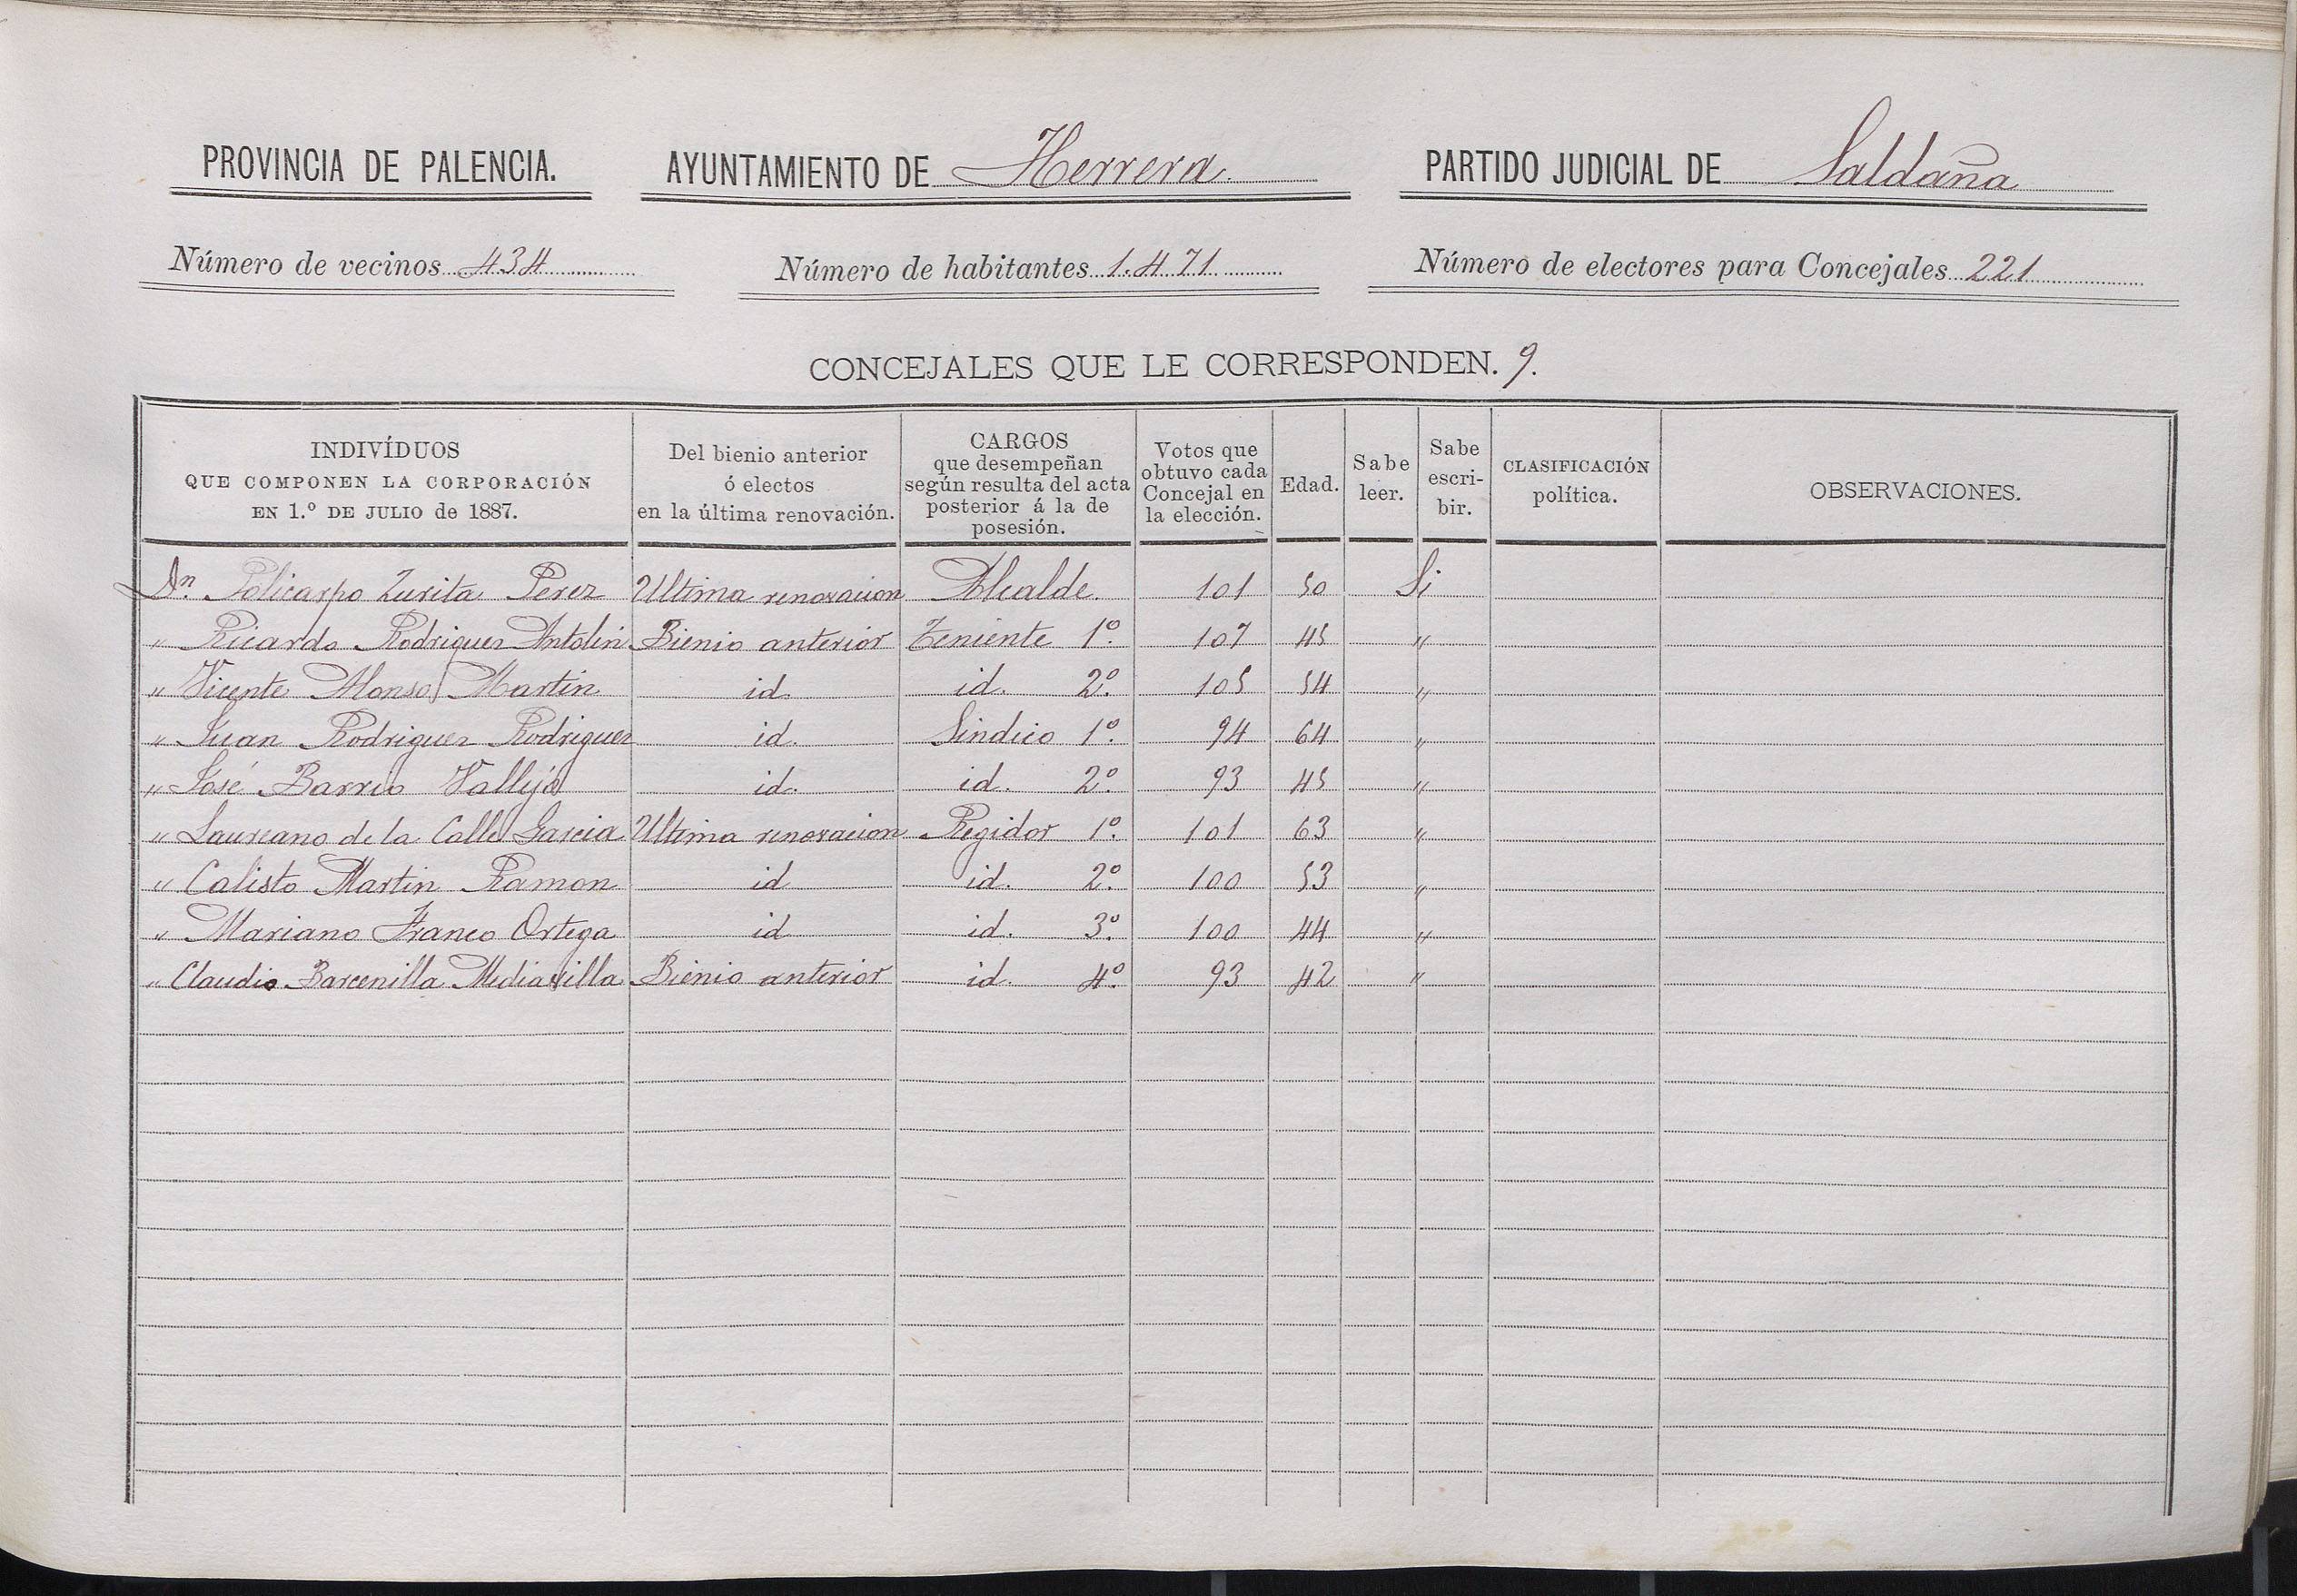 PROVINCIA DE PALENCIA. AYUNTAMIENTO DE Herrera. PARTIDO JUDICIAL DE Saldaña
Número de vecinos 434 Número de habitantes 1.471 Número de electores para Concejales 221
CONCEJALES QUE LE CORRESPONDEN. 9.
INDIVÍDUOS QUE COMPONEN LA CORPORACIÓN EN 1.º DE JULIO de 1887. Del bienio anterior ó electos en la última renovación. CARGOS que desempeñan según resulta del acta posterior á la de posesión. Votos que obtuvo cada Concejal en la elección. Edad. Sabe leer. Sabe escribir. CLASIFICACIÓN política. OBSERVACIONES.
Dn. Policarpo Zurita Perez Ultima renovacion Alcalde. 101 50 Si
" Ricardo Rodriguez Antolin Bienio anterior Teniente 1º. 107 45 "
" Vicente Alonso Martin id. id. 2º. 105 54 "
" Juan Rodriguez Rodriguez id. Sindico 1º. 94 64 "
" José Barrio Vallejo id. id. 2º. 93 45 "
" Laureano de la Calle Garcia Ultima renovacion Regidor 1º. 101 63 "
" Calisto Martin Ramon id id. 2º. 100 53 "
" Mariano Franco Ortega id id. 3º. 100 44 "
" Claudio Barcenilla Mediavilla Bienio anterior id. 4º. 93 42 "